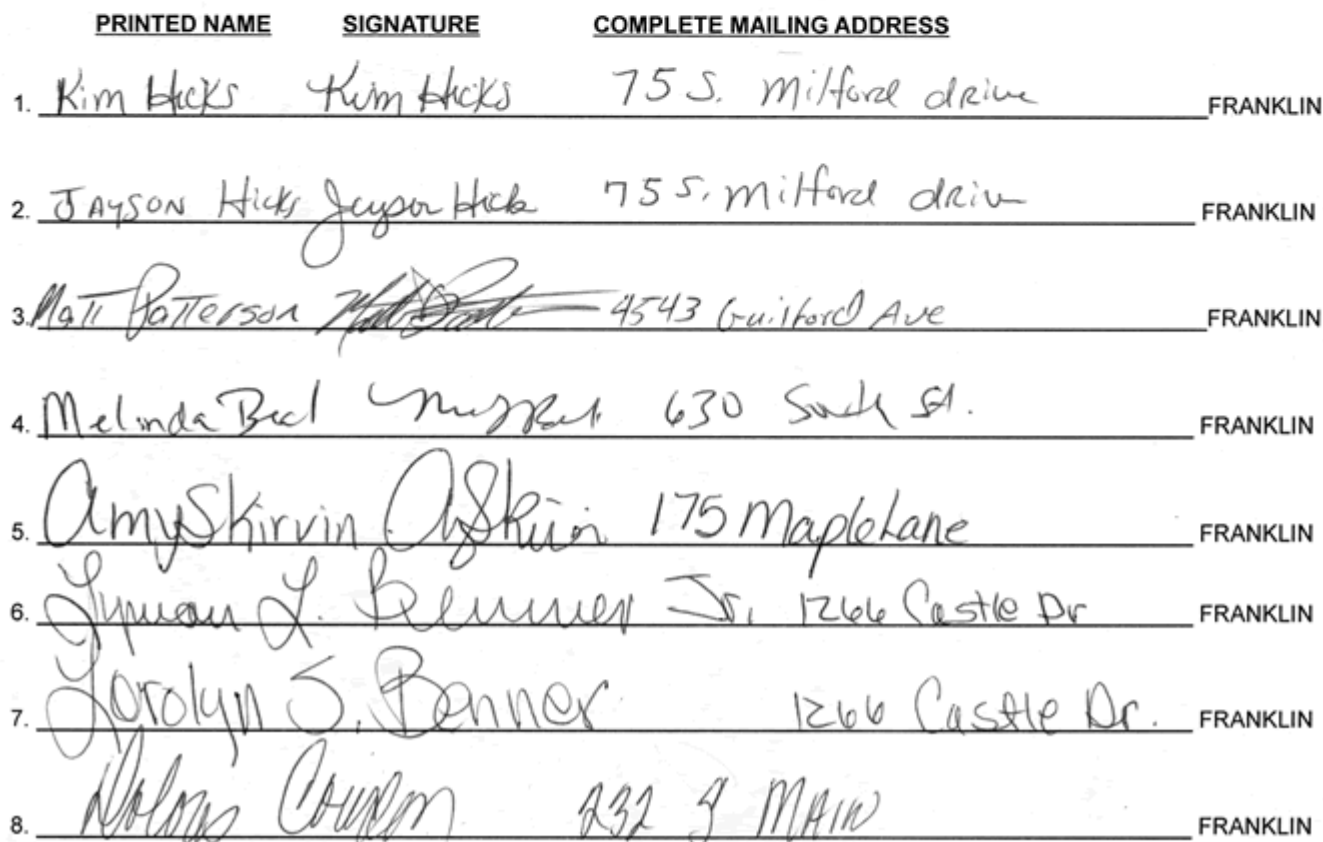 PRINTED NAME SIGNATURE COMPLETE MAILING ADDRESS
1. Kim Hicks Kim Hicks 75 S. Milford drive FRANKLIN
2. JAYSON Hicks Jayson Hicks 75 S. Milford drive FRANKLIN
3. Matt Patterson 4543 Guilford Ave FRANKLIN
4. Melinda 630 South St. FRANKLIN
5. Amy Skirvin 175 Maple Lane FRANKLIN
6. Lyman L. Benner Jr. 1266 Castle Dr FRANKLIN
7. S. Benner 1266 Castle Dr. FRANKLIN
8. 232 S MAIN FRANKLIN